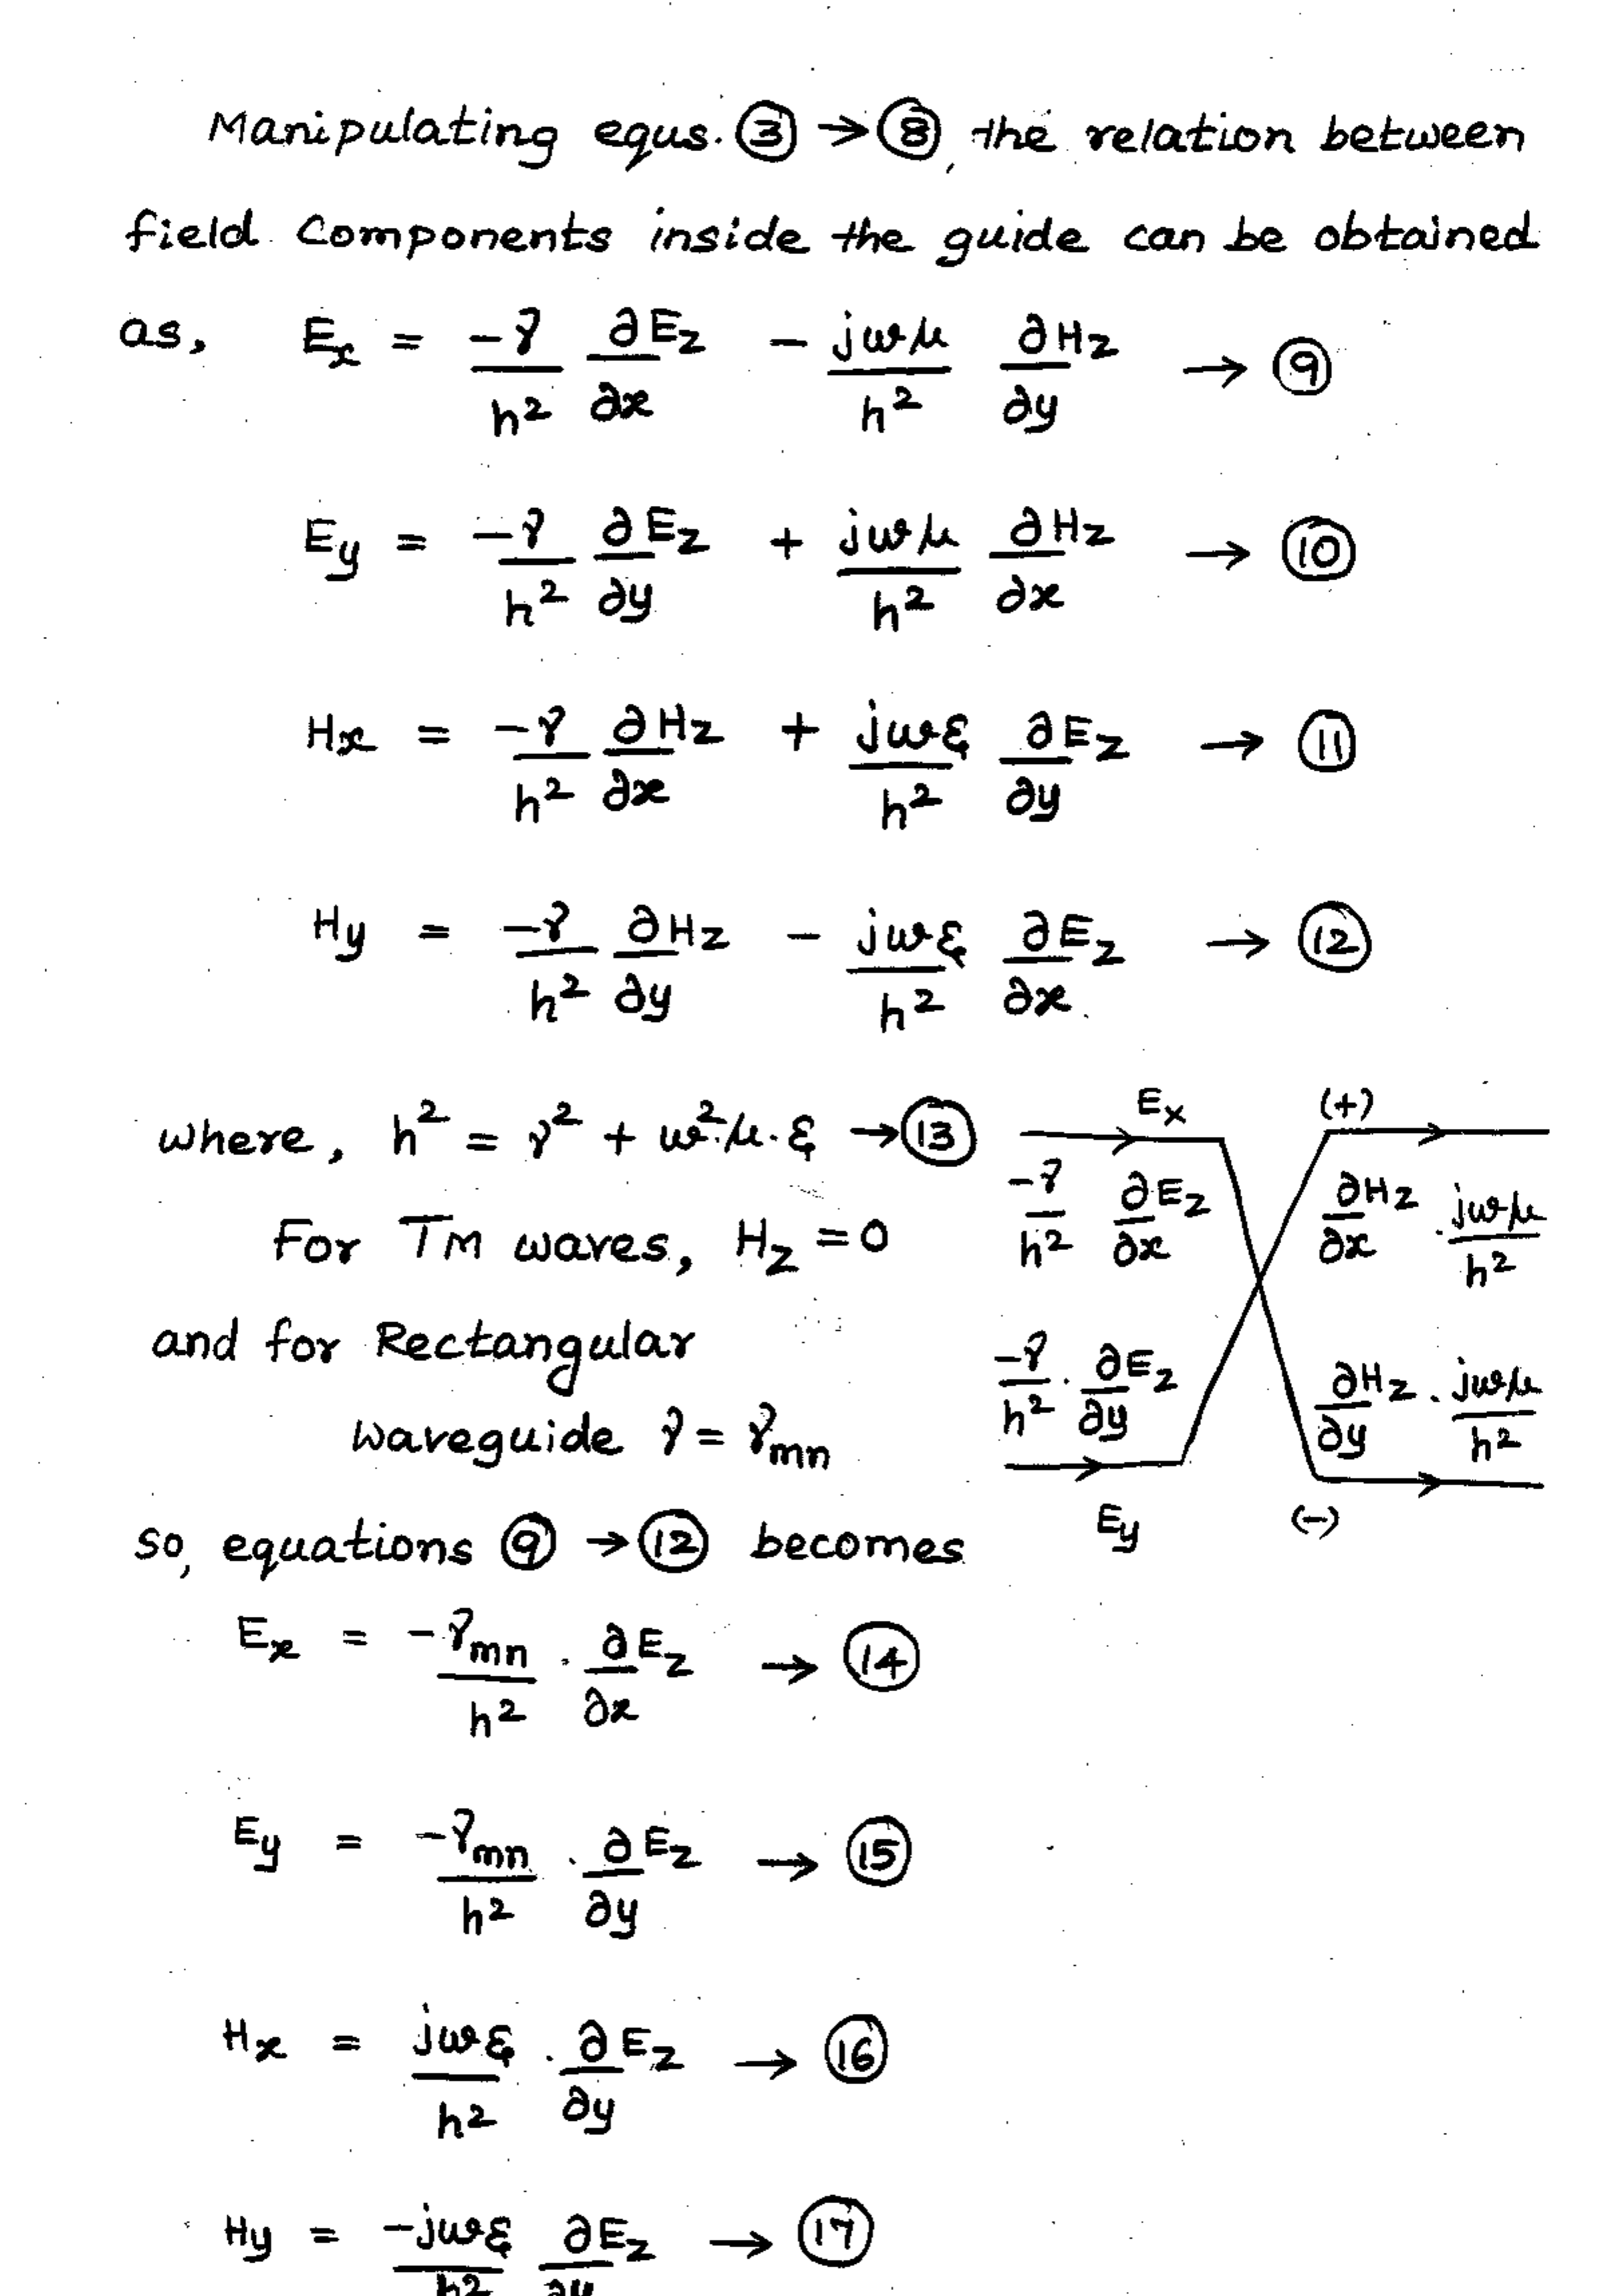 Manipulating equs. ③ → ⑧, the relation between
field components inside the guide can be obtained
as, Ex = -γ/h² ∂Ez/∂x - jωμ/h² ∂Hz/∂y → ⑨
Ey = -γ/h² ∂Ez/∂y + jωμ/h² ∂Hz/∂x → ⑩
Hx = -γ/h² ∂Hz/∂x + jωε/h² ∂Ez/∂y → ⑪
Hy = -γ/h² ∂Hz/∂y - jωε/h² ∂Ez/∂x → ⑫
where, h² = γ² + ω²μ.ε → ⑬
For TM waves, Hz = 0
and for Rectangular
waveguide γ = γmn
Ex (+)
-γ/h² ∂Ez/∂x ∂Hz/∂x . jωμ/h²
-γ/h² . ∂Ez/∂y ∂Hz/∂y . jωμ/h²
Ey (-)
so, equations ⑨ → ⑫ becomes
Ex = -γmn/h² . ∂Ez/∂x → ⑭
Ey = -γmn/h² . ∂Ez/∂y → ⑮
Hx = jωε/h² . ∂Ez/∂y → ⑯
Hy = -jωε/h² ∂Ez/∂y → ⑰